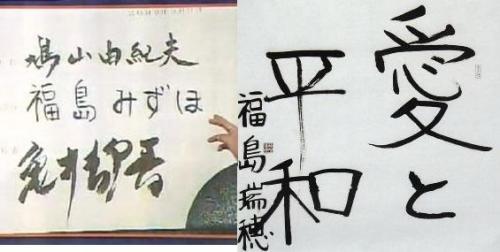 鳩山由紀夫
福島みずほ
亀井静香
愛と
平和
福島瑞穂